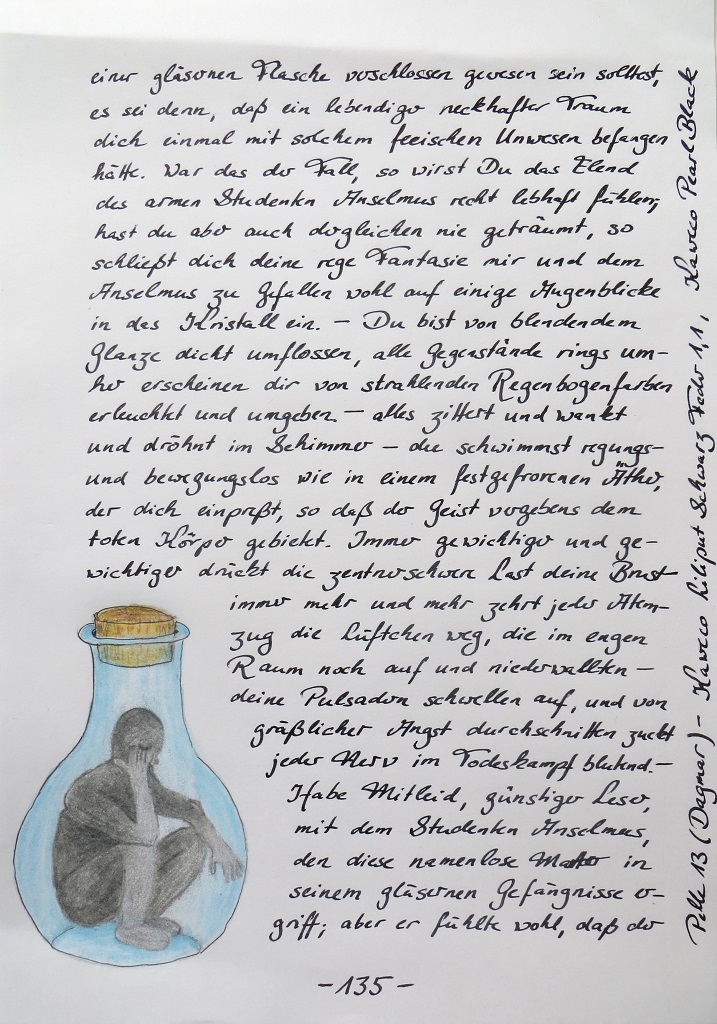 einer gläsernen Flasche verschlossen gewesen sein solltest,
es sei denn, daß ein lebendiger neckhafter Traum
dich einmal mit solchem feeischen Unwesen befangen
hätte. War das der Fall, so wirst Du das Elend
des armen Studenten Anselmus recht lebhaft fühlen;
hast du aber auch dergleichen nie geträumt, so
schließt dich deine rege Fantasie mir und dem
Anselmus zu Gefallen wohl auf einige Augenblicke
in das Kristall ein. – Du bist von blendendem
Glanze dicht umflossen, alle Gegenstände rings um-
her erscheinen dir von strahlenden Regenbogenfarben
erleuchtet und umgeben – alles zittert und wankt
und dröhnt im Schimmer – du schwimmst regungs-
und bewegungslos wie in einem festgefrorenen Äther,
der dich einpreßt, so daß der Geist vergebens dem
toten Körper gebietet. Immer gewichtiger und ge-
wichtiger drückt die zentnerschwere Last deine Brust
immer mehr und mehr zehrt jeder Atem-
zug die Lüftchen weg, die im engen
Raum noch auf und niederwallten –
deine Pulsadern schwellen auf, und von
gräßlicher Angst durchschnitten zuckt
jeder Nerv im Todeskampf blutend. –
Habe Mitleid, günstiger Leser,
mit dem Studenten Anselmus,
den diese namenlose Marter in
seinem gläsernen Gefängnisse er-
griff; aber er fühlte wohl, daß der
– 135 –
Pelle 13 (Dagmar) – Kaweco Liliput Schwarz Feder 1,1, Kaweco Pearl Black